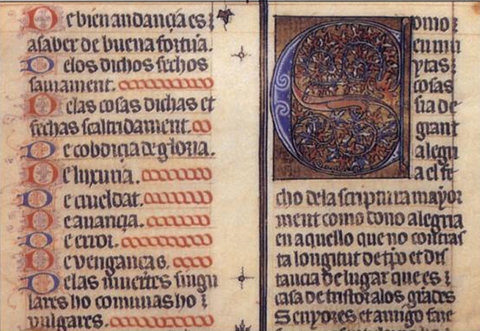 De bienandança es ⁊
asaber de buena fortuna.
Delos dichos fechos
sanament.
Delas cosas dichas et
fechas scaltridament.
De cobdiçia de gloria.
De luxuria.
De crueldat.
De auaricia.
De error.
De venganças.
Delas muertes singu
lares ho comunas ho ⁊
vulgares.
Como ⁊
en mu
ytas ⁊
cosas
sia de
grant
alegri
a el fe
cho dela scriptura mayor
ment como dono alegria
en aquello que no contras
ta longitut de tp̄o et dis
tancia de lugar que es ⁊
casa de tristor alos grādes
Senyores et antigo